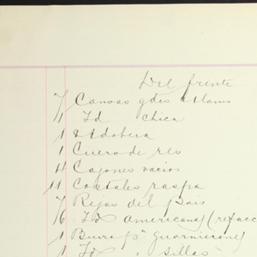 Del frente
7 Canoas gdes
4 Id chica
1 Adobera
1 Cuero de res
4 Cajones vacios
11 Costales raspa
7 Rejas del pais
16 Id americanas (refacc
1 Burro pa guarniciones
1 Id " sillas